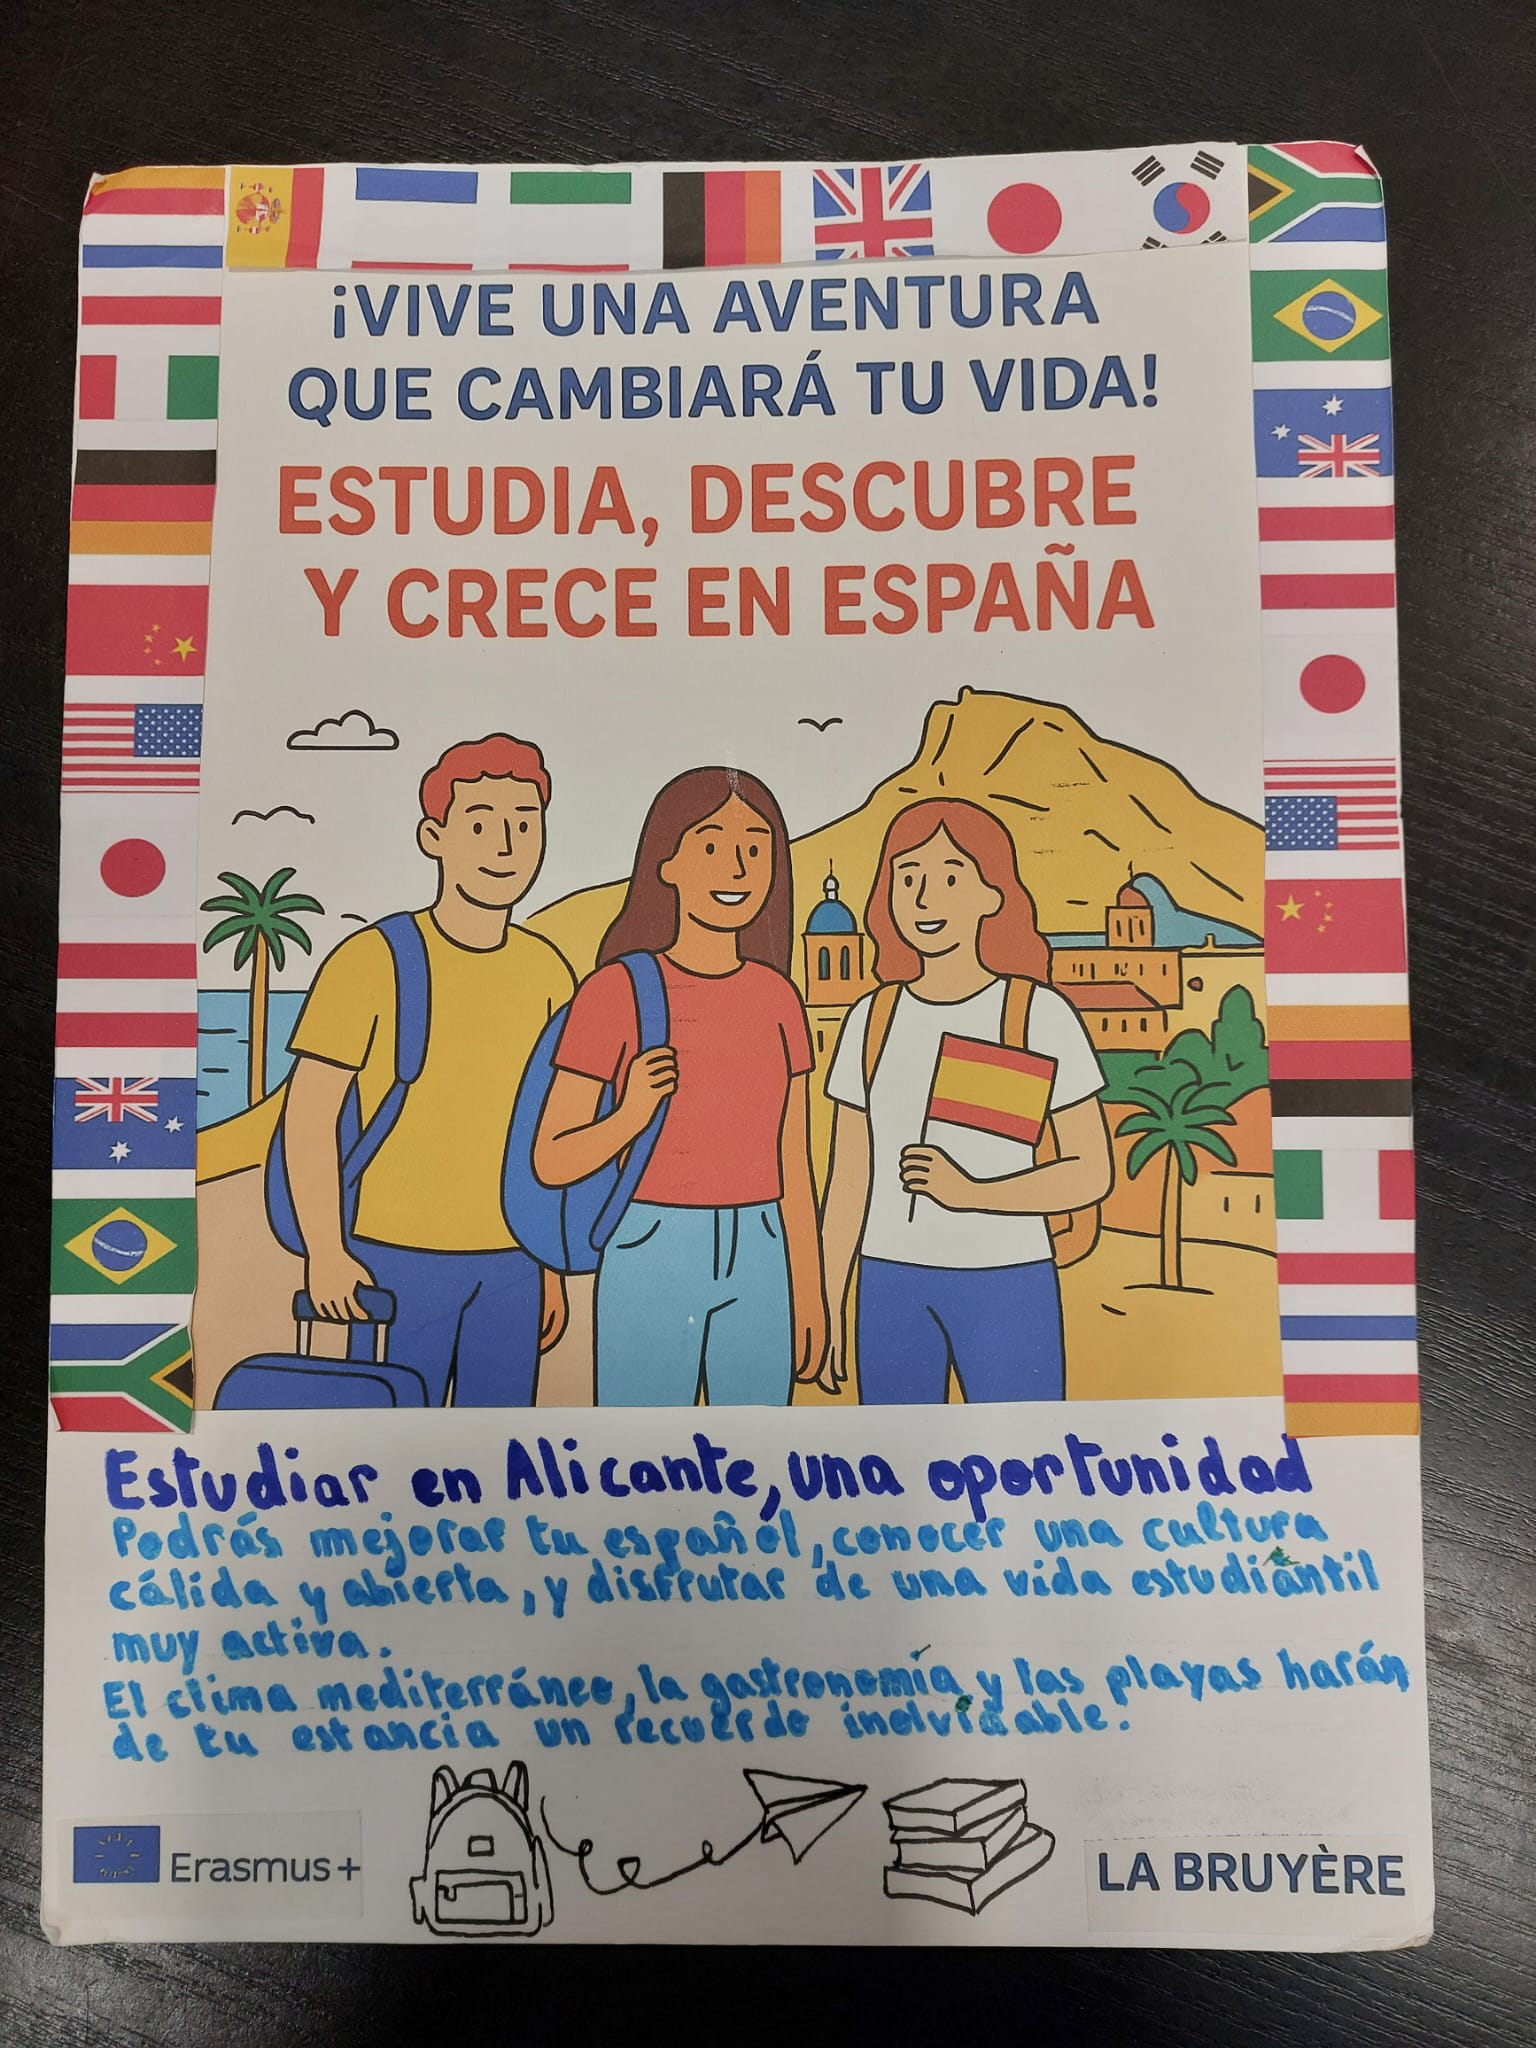 ¡VIVE UNA AVENTURA
QUE CAMBIARÁ TU VIDA!
ESTUDIA, DESCUBRE
Y CRECE EN ESPAÑA
Estudiar en Alicante, una oportunidad
Podrás mejorar tu español, conocer una cultura
cálida y abierta, y disfrutar de una vida estudiantil
muy activa.
El clima mediterráneo, la gastronomía y las playas harán
de tu estancia un recuerdo inolvidable.
Erasmus+
LA BRUYÈRE